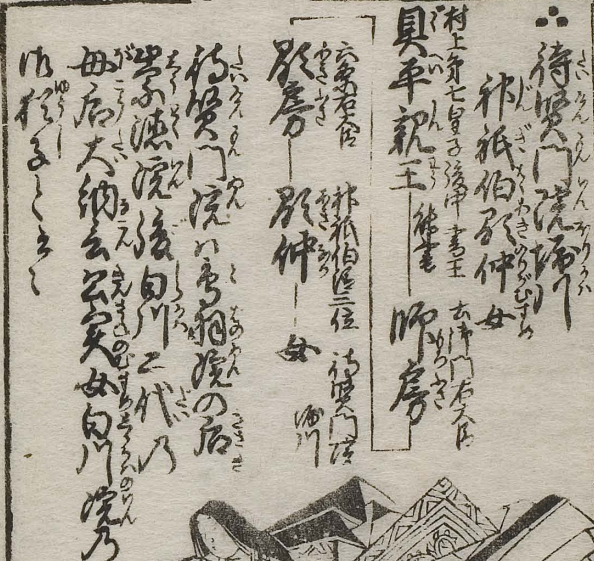 待賢門院堀川
神祇伯顕仲女
村上第七皇子後中書王
具平親王 能書
土御門右大臣
師房
六条右大臣
顕房
神祇伯従三位
顕仲
女
待賢門院
堀川
待賢門院は鳥羽院の后
崇徳院後白川二代乃
母后大納言公実女白川院乃
御猶子